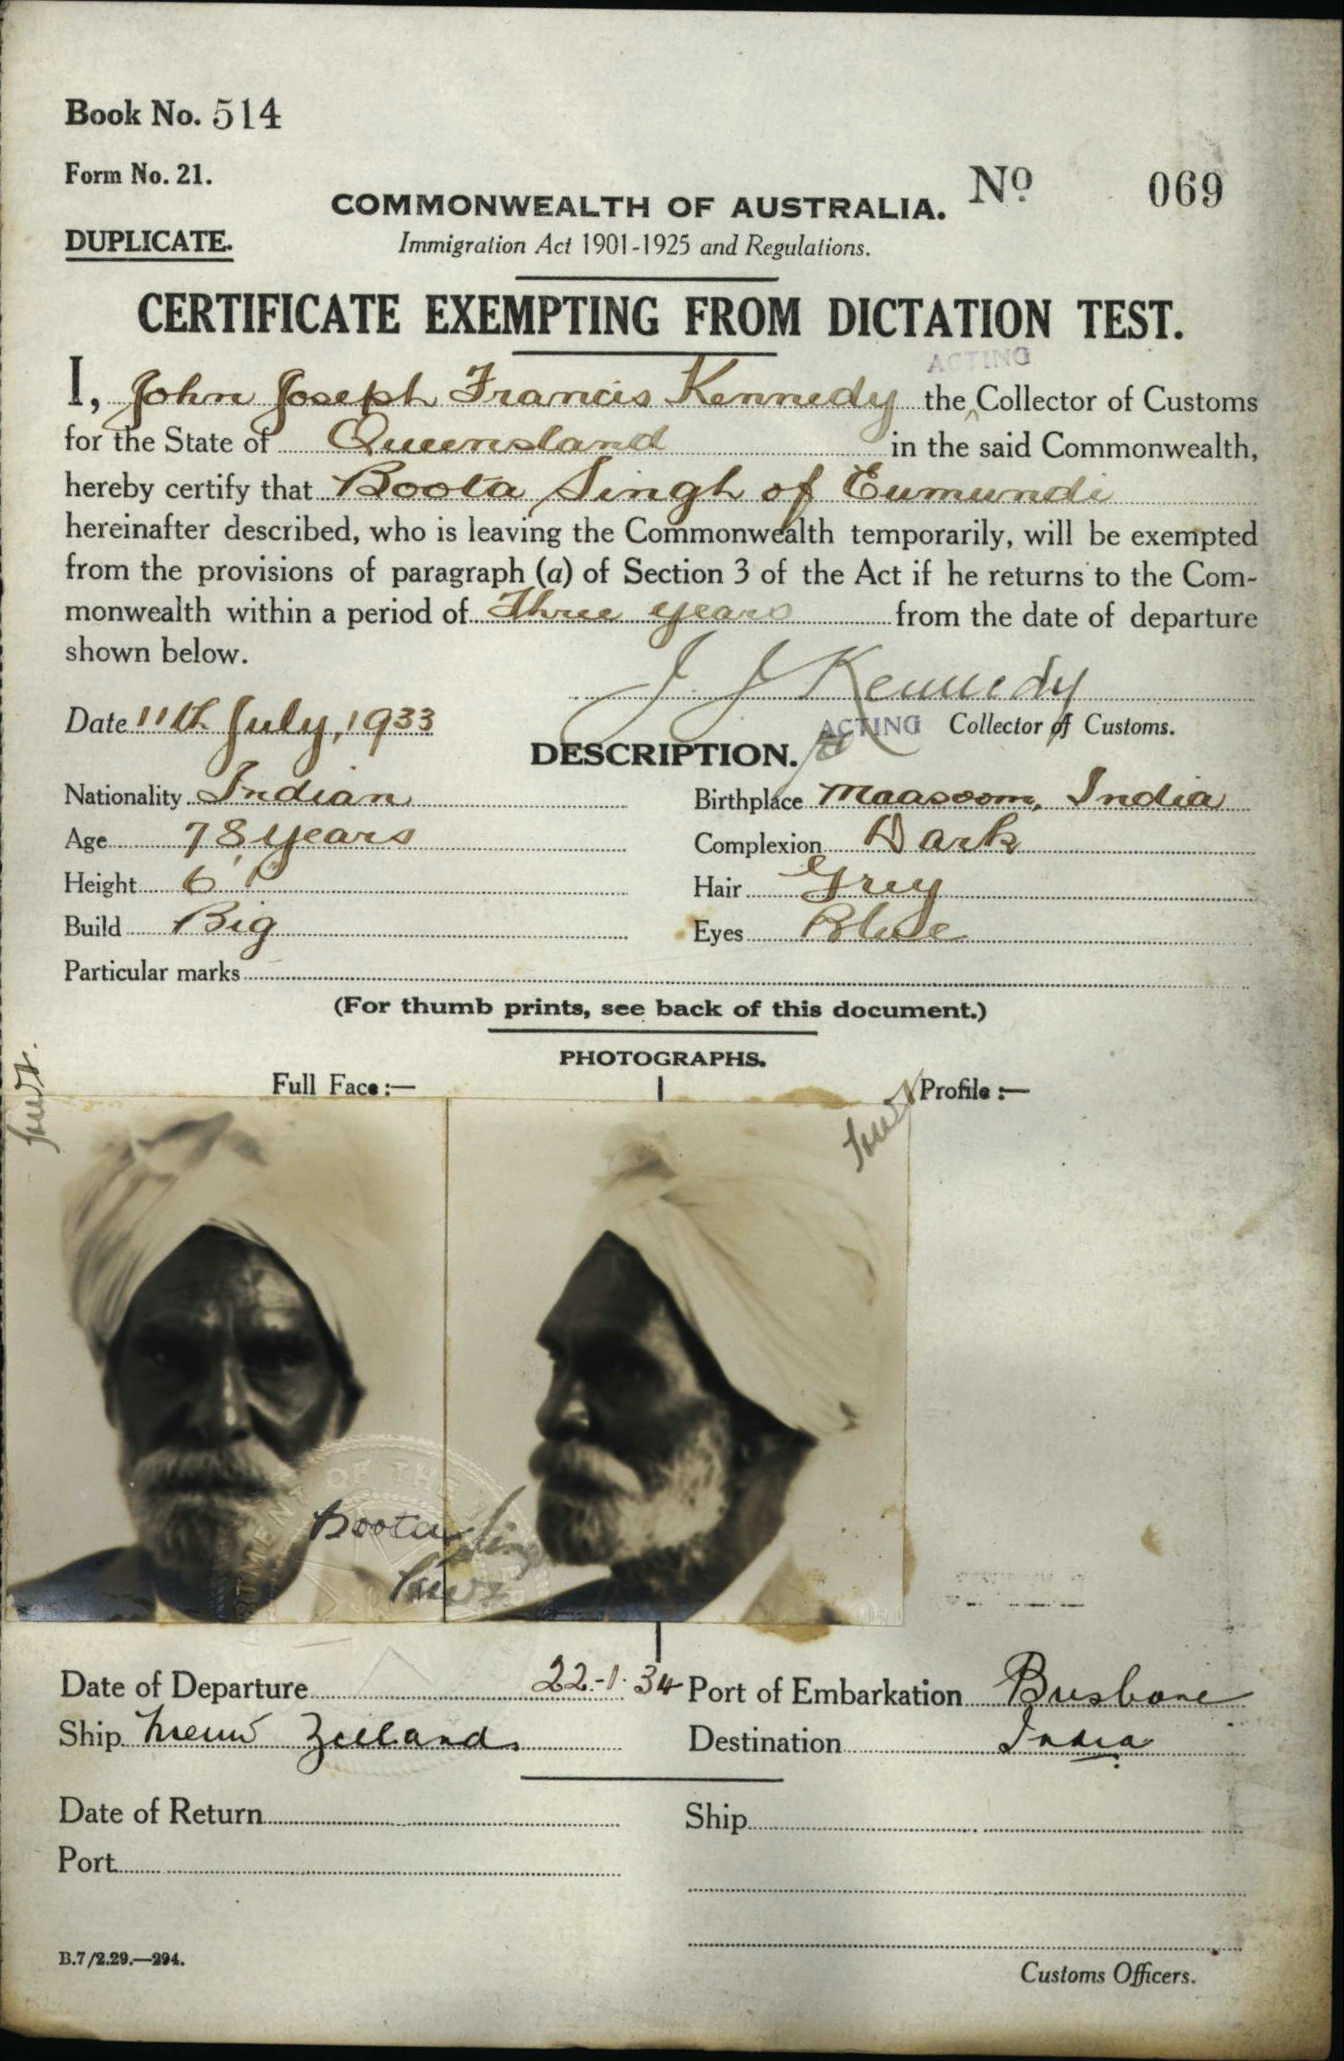 Book No. 514
Form No. 21.
COMMONWEALTH OF AUSTRALIA.
Nº 069
DUPLICATE.
Immigration Act 1901-1925 and Regulations.
CERTIFICATE EXEMPTING FROM DICTATION TEST.
ACTING
I, John Joseph Francis Kennedy the Collector of Customs
for the State of Queensland in the said Commonwealth,
hereby certify that Boota Singh of Eumundi
hereinafter described, who is leaving the Commonwealth temporarily, will be exempted
from the provisions of paragraph (a) of Section 3 of the Act if he returns to the Com-
monwealth within a period of Three years from the date of departure
shown below.
J. J. Kennedy
Date 11th July, 1933
ACTING Collector of Customs.
DESCRIPTION.
Nationality Indian Birthplace Maasoom, India
Age 78 years Complexion Dark
Height 6' Hair Grey
Build Big Eyes Blue
Particular marks
(For thumb prints, see back of this document.)
PHOTOGRAPHS.
Full Face:— Profile:—
OF THE
Boota Sing
Date of Departure 22-1-34 Port of Embarkation Brisbane
Ship Zealand Destination India
Date of Return Ship
Port
B.7/2.29.—294.
Customs Officers.